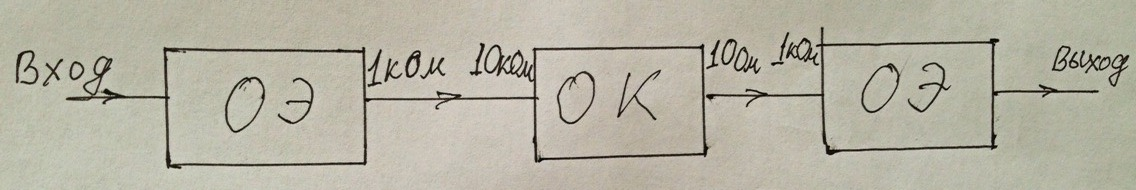 Вход ОЭ 1кОм 10кОм ОК 10Ом 1кОм ОЭ Выход